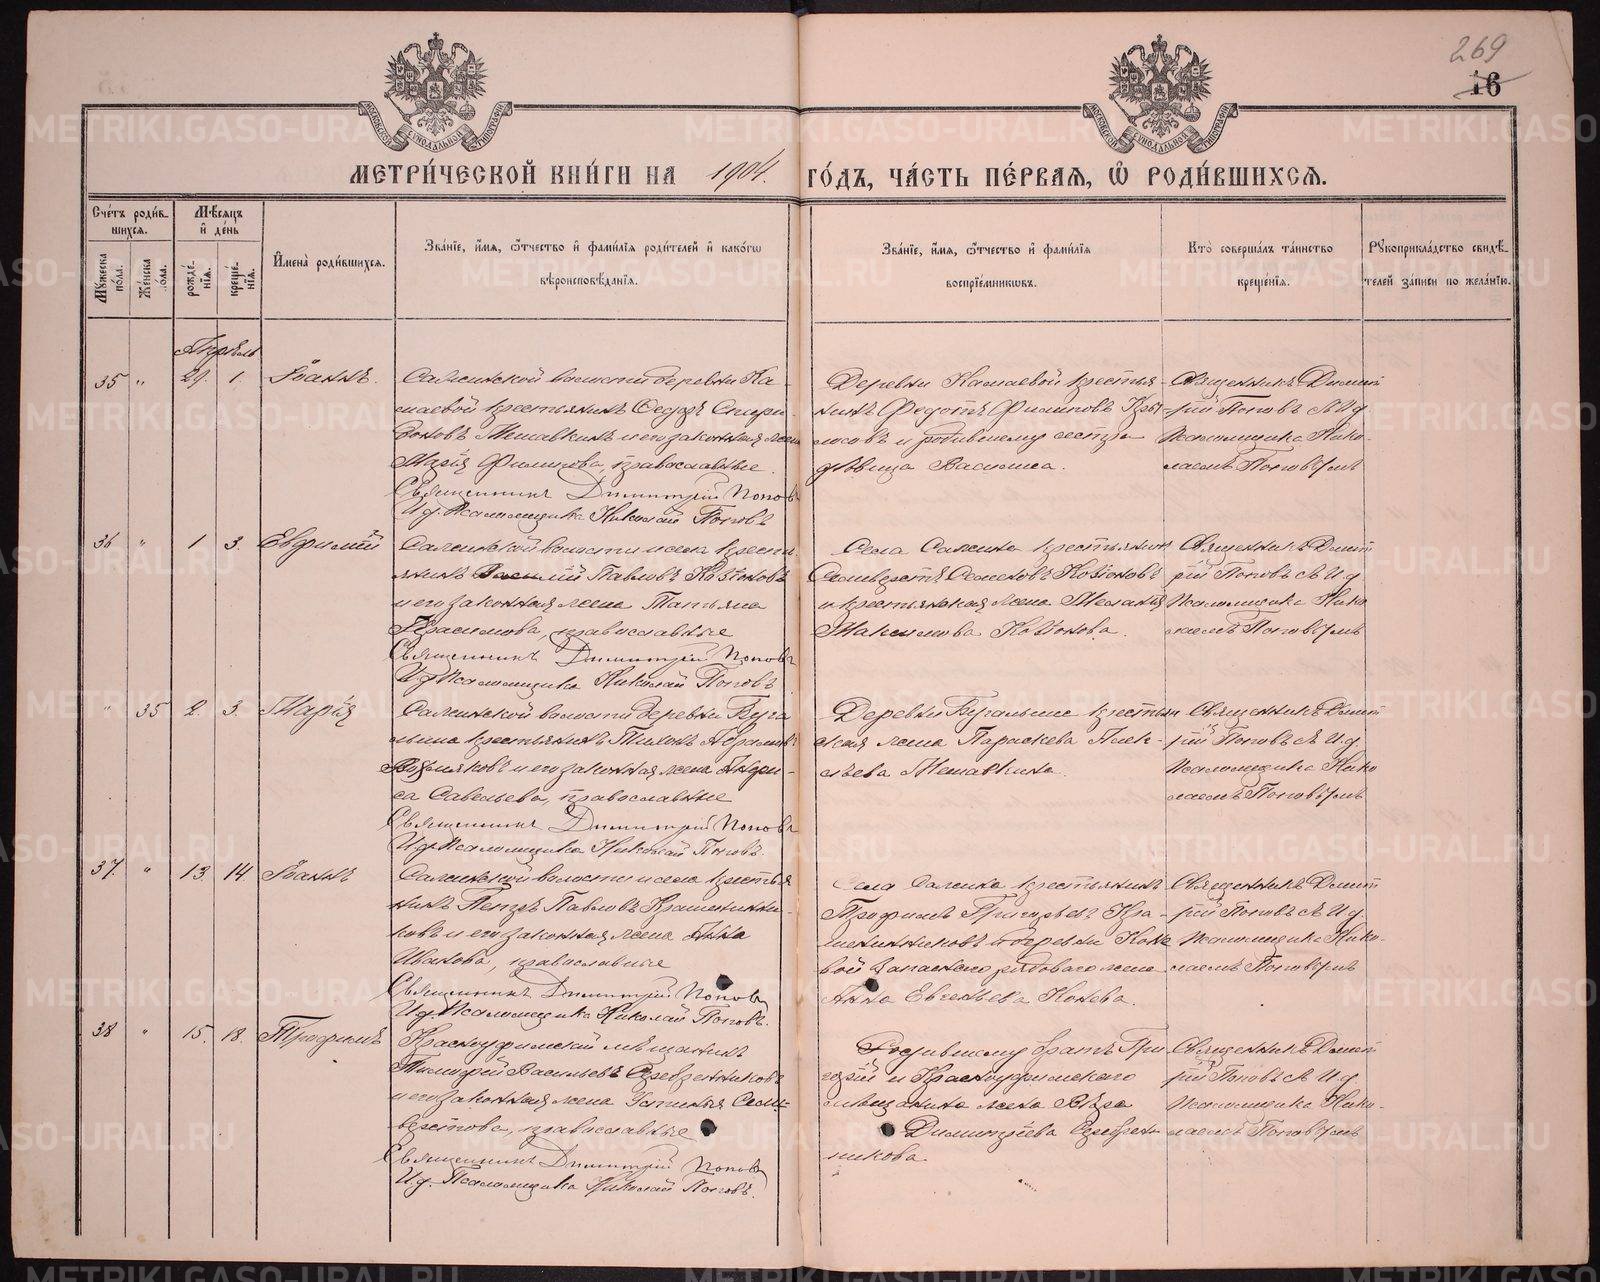 269
16
МОСКОВСКОЙ СѴНОДАЛЬНОЙ ТИПОГРАФІИ
МОСКОВСКОЙ СѴНОДАЛЬНОЙ ТИПОГРАФІИ
МЕТРИ́ЧЕСКОЙ КНИ́ГИ НА 1904. ГО́ДЪ, ЧА́СТЬ ПЕ́РВАЯ, Ѽ РОДИ́ВШИХСЯ.
Сче́тъ роди́в-
шихся.
Мѣ́сяцъ
и҆ де́нь
Мꙋ́жеска по́ла.
Же́нска по́ла.
рожде́нїя.
креще́нїя.
И҆мена̀ роди́вшихся.
Зва́нїе, и҆́мя, ѻ҆́тчество и҆ фами́лїя роди́телей и҆ како́гѡ
вѣроисповѣ́данїя.
Зва́нїе, и҆́мя, ѻ҆́тчество и҆ фами́лїя
воспрїе́мникѡвъ.
Кто̀ соверша́лъ та́инство
креще́нїя.
Рꙋкоприкла́дство свидѣ́-
телей за́писи по жела́нїю.
Апрѣль
35 " 29. 1. Іоаннъ.
Сажинской волости деревни Ка-
маевой крестьянинъ Ѳедоръ Спири-
доновъ Мешавкинъ и его законная жена
Марія Филипова, православные.
Священникъ Димитрій Поповъ
И.д. Псаломщика Николай Поповъ
Деревни Камаевой крестья-
нинъ Федотъ Филиповъ
и родившему сестра
дѣвица Васииса.
Священникъ Димит-
рій Поповъ съ И.д.
Псаломщика Нико-
лаемъ Поповымъ
36 " 1 3. Евфимій
Сажинской волости и села крестья-
нинъ Василій Павловъ Козіоновъ
и его законная жена Татьяна
Герасимова, православные
Священникъ Димитрій Поповъ
И.д. Псаломщика Николай Поповъ
Села Сажина крестьянин
Селиверстъ Семеновъ Козіоновъ
и крестьянская жена Меланія
Максимова Козіонова.
Священникъ Димит
рій Поповъ съ И.д.
Псаломщика Нико
лаемъ Поповымъ
" 35 2. 3. Марія
Сажинской волости деревни Буга
лыша крестьянинъ Тихонъ Абрамовъ
и его законная жена Анфи-
са Савельева, православные
Священникъ Димитрій Поповъ
И.д. Псаломщика Николай Поповъ.
Деревни Бугалыша крестьян
ская жена Параскева Алек-
сѣева Мешавкина.
Священникъ Димит
рій Поповъ съ И.д.
Псаломщика Нико
лаемъ Поповымъ
37. " 13. 14 Іоаннъ
Сажинской волости и села крестья
нинъ Петръ Павловъ Крашенинни-
ковъ и его законная жена Анна
Иванова, православные
Священникъ Димитрій Поповъ
И.д. Псаломщика Николай Поповъ.
Села Сажина крестьянинъ
Трофимъ Григорьевъ Кра-
шенинниковъ и деревни Коне
вой запаснаго рядового жена
Анна Евгеньева Конева.
Священникъ Димит
рій Поповъ съ И.д.
Псаломщика Нико-
лаемъ Поповымъ
38 " 15. 18. Трофимъ
Красноуфимскій мѣщанинъ
Тимофей Васильевъ Серебренниковъ
и его законная жена Устинья Сели-
верстова, православные
Священникъ Димитрій Поповъ
И.д. Псаломщика Николай Поповъ.
Родившему братъ Гри-
горій и Красноуфимскаго
мѣщанина жена Вѣра
Димитріева Серебрен
никова.
Священникъ Димит
рій Поповъ съ И.д.
Псаломщика Нико-
лаемъ Поповымъ
METRIKI.GASO-URAL.RU